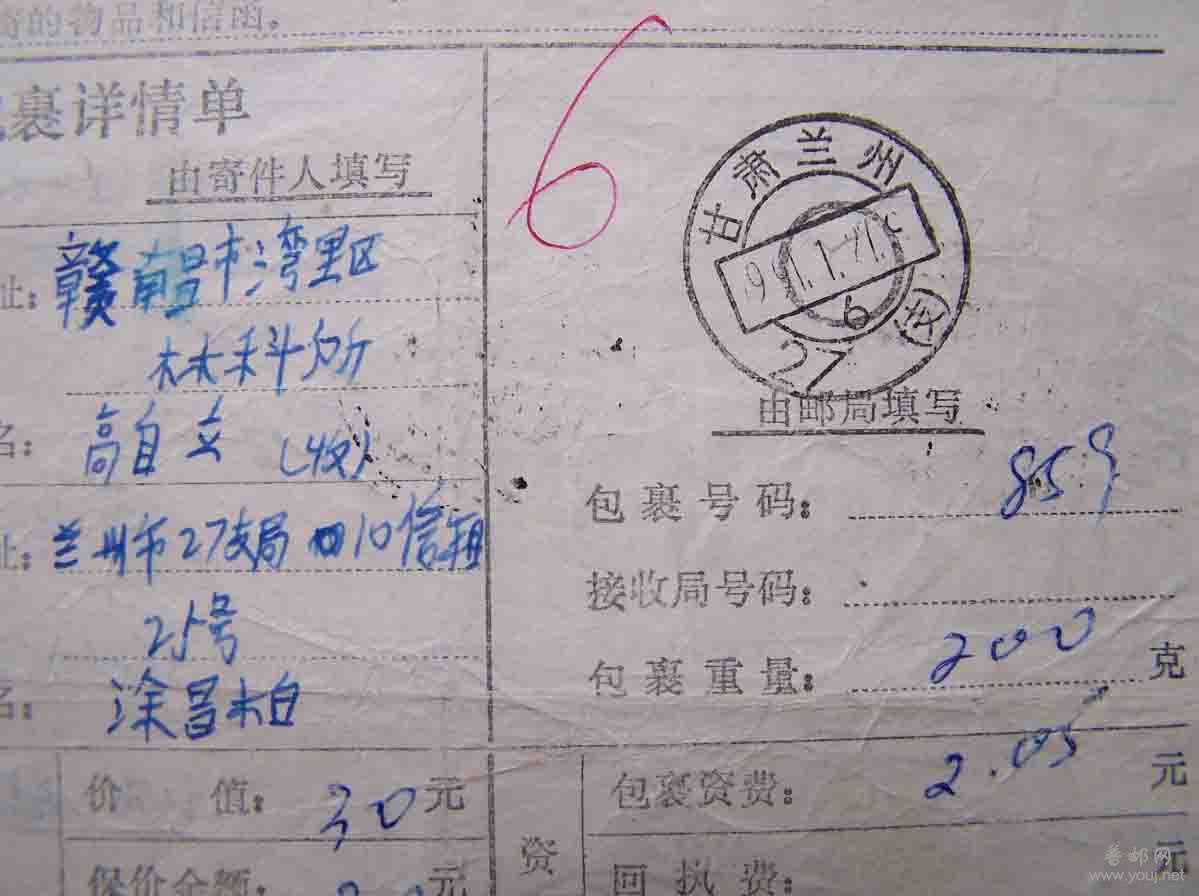 寄的物品和信函。
包裹详情单
由寄件人填写
址:
赣南昌市湾里区
林科所
名:
高自立 (收)
址:
兰州市27支局 10信箱
25号
名:
涂昌柏
6
甘肃兰州
6
27
由邮局填写
包裹号码: 859
接收局号码:
包裹重量: 200 克
价 值: 30 元
保价金额: 元
资
包裹资费: 2.05 元
回执费: 元
普邮网
www.youj.net